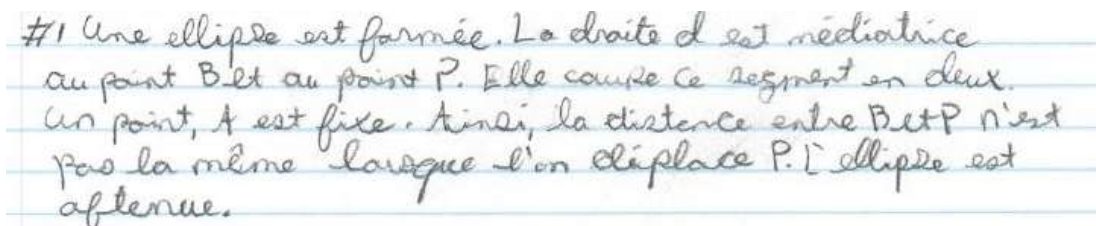 #1 Une ellipse est formée. La droite d est médiatrice
au point B et au point P. Elle coupe ce segment en deux.
Un point, A est fixe. Ainsi, la distance entre B et P n'est
pas la même lorsque l'on déplace P. L'ellipse est
obtenue.